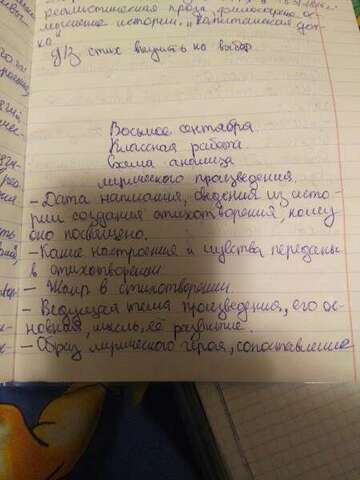 реалистическая проза, философское ос-
мысление истории. "Капитанская доч-
ка"
Д/З стих выучить на выбор.
Восьмое сентября.
Классная работа
Схема анализа
лирического произведения.
- Дата написания, сведения из исто-
рии создания стихотворения, кому
оно посвящено.
- Какие настроения и чувства переданы
в стихотворении
- Жанр в стихотворении.
- Ведущая тема произведения, его ос-
новная, мысль, её развитие.
- Образ лирического героя, сопоставление